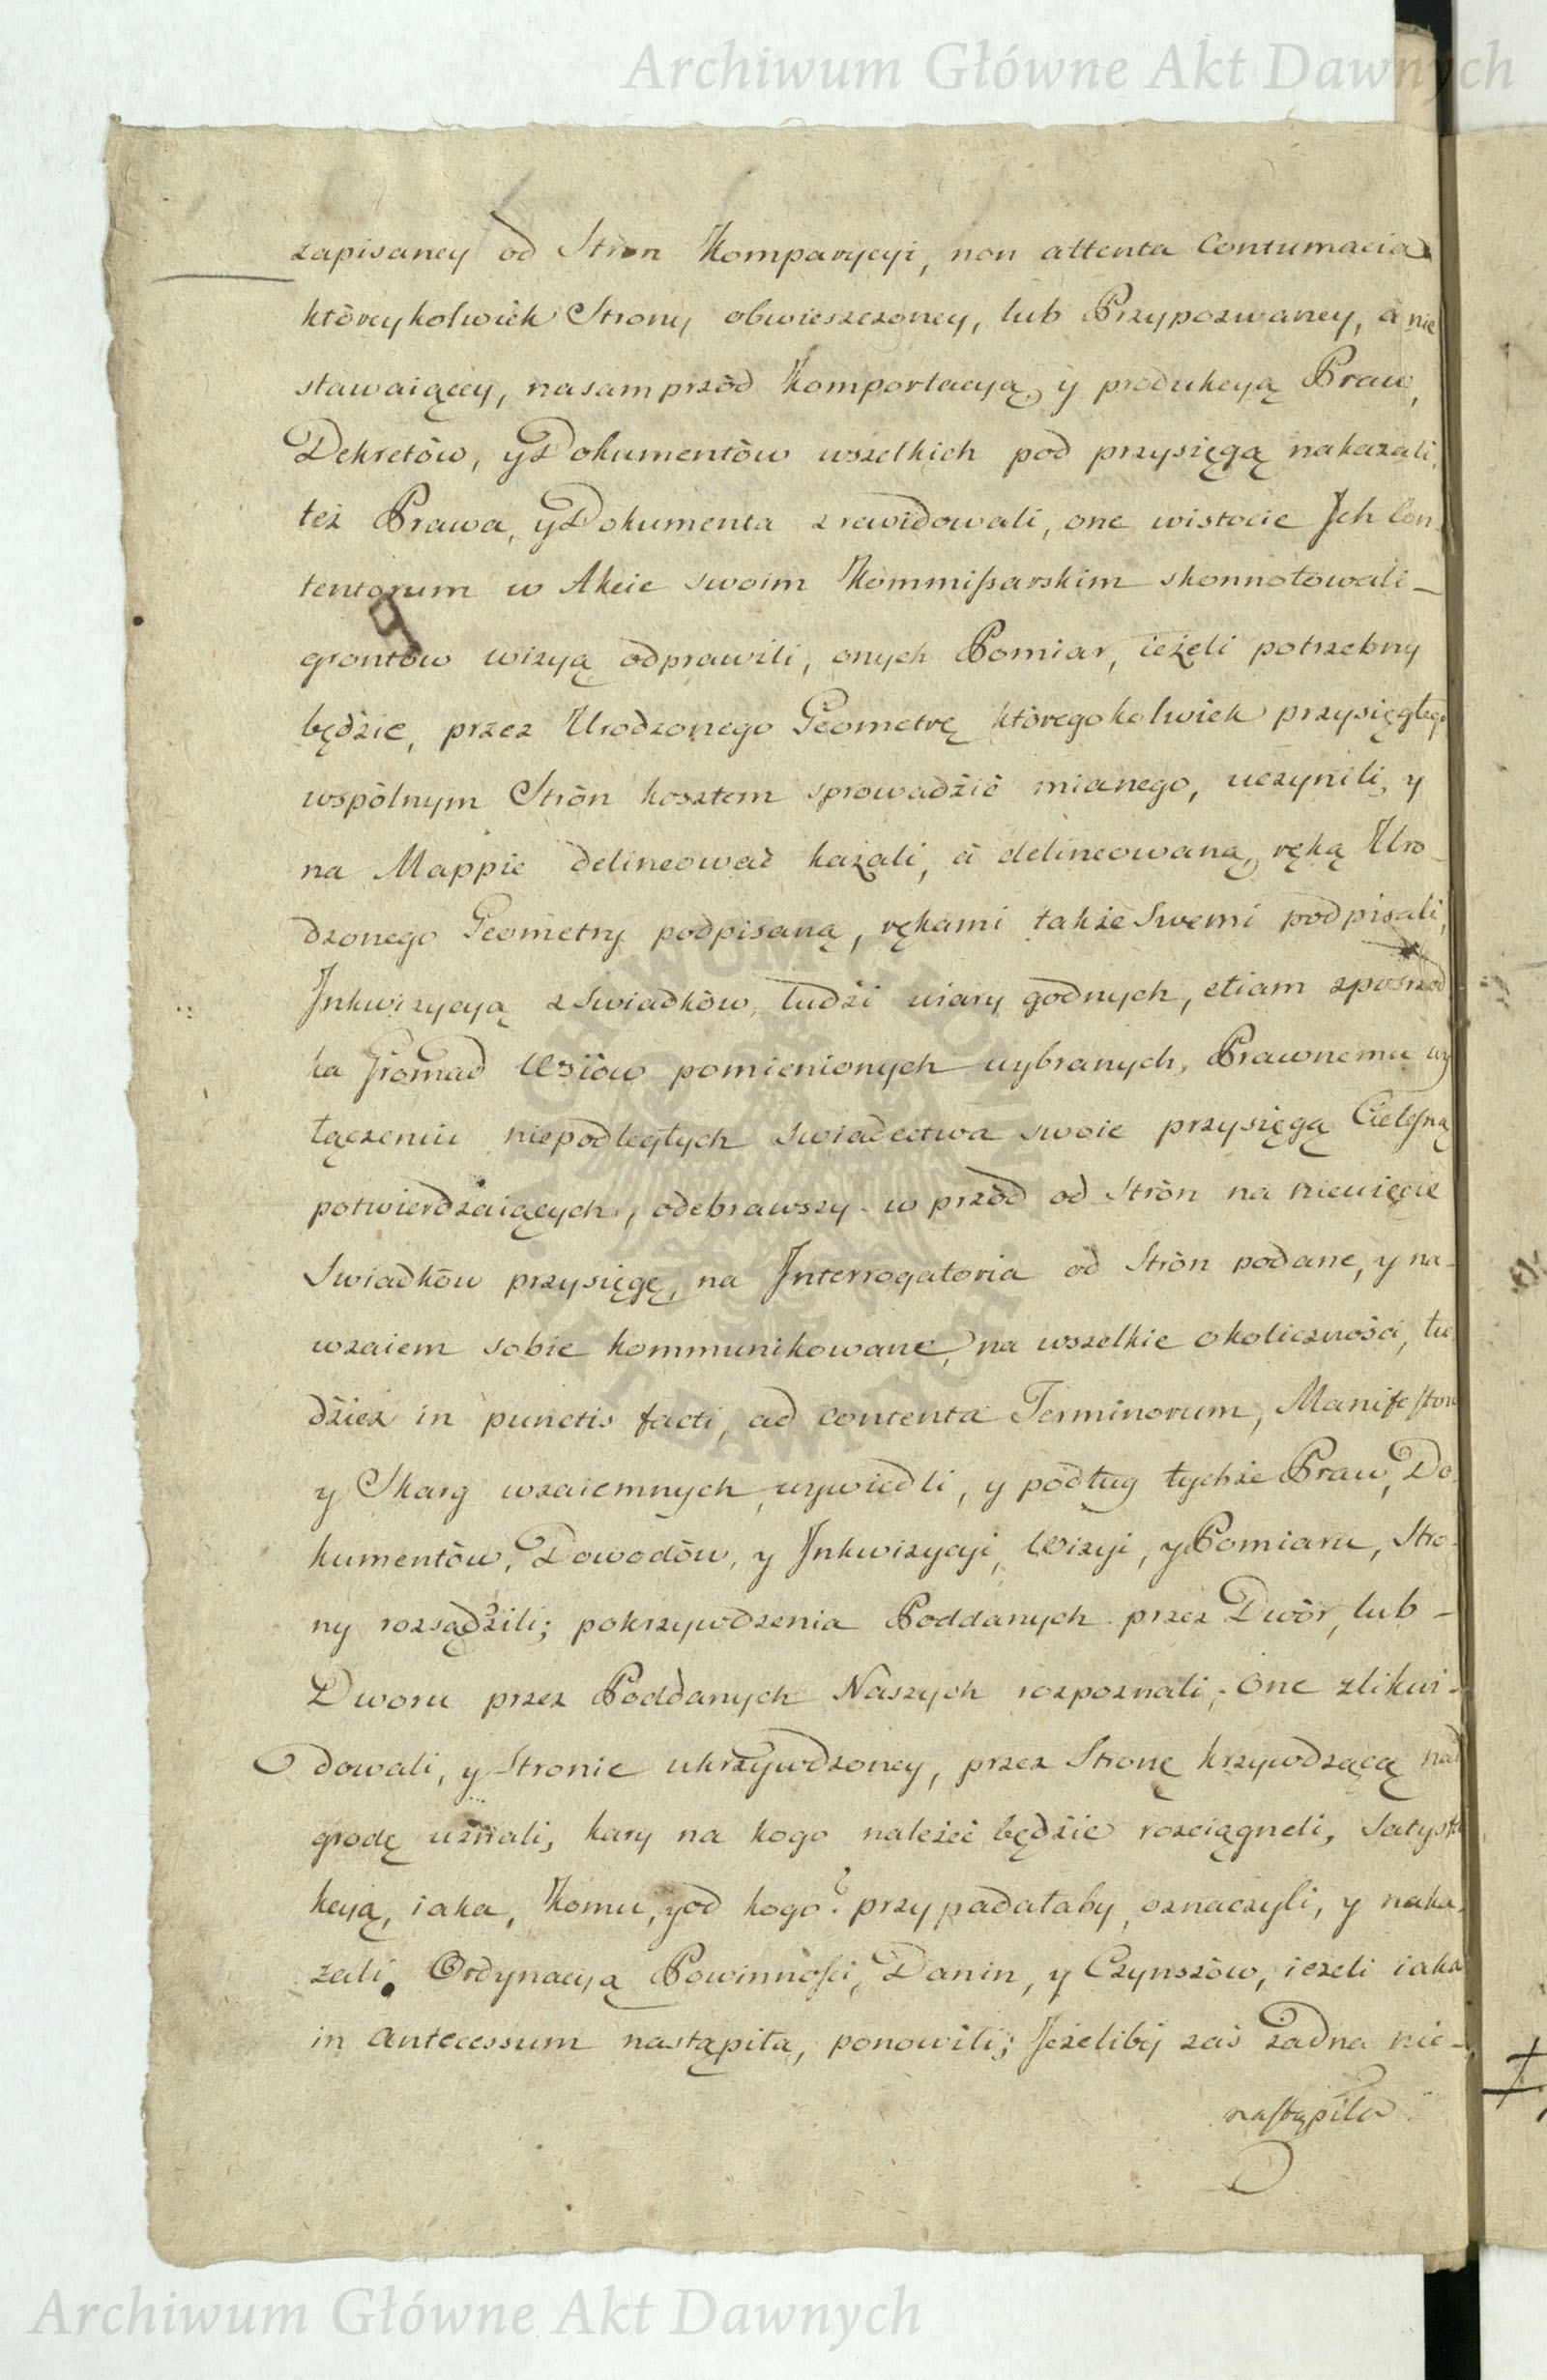 Archiwum Główne Akt Dawnych
zapisaney od Stron Komparycyi, non attenta Contumacia
któreykolwiek Strony obwieszczoney, lub Przypozwaney, a nie
stawaiącey, nasamprzód Komportacyą, y produkcyą Praw,
Dekretów, y Dokumentów wszelkich pod przysięgą nakazali,
też Prawa, y Dokumenta zrewidowali, one wistocie Jch Con-
tentorum w Akcie swoim Kommißarskim skonnotowali –
grontow wizyą odprawili, onych Pomiar, ieżeli potrzebny
będzie, przez Urodzonego Geometrę któregokolwiek przysięgłego
wspólnym Strón kosztem sprowadzić mianego, uczynili, y
na Mappie delineować każali, a delineowaną, ręką Uro-
dzonego Geometry podpisaną, rękami także Swemi podpisali,
Jnkwizycyą z Swiadków, ludzi wiary godnych, etiam zposrzod
ka Gromad Wsiów pomienionych wybranych, Prawnemu wy
łączeniu niepodległych swiadectwa swoie przysięgą Cielesną
potwierdzaiących, odebrawszy w przód od Strón na niewięcie
Swiadków przysięgę, na Jnterrogatoria od Strón podane, y na-
wzaiem sobie kommunikowane, na wszelkie okoliczności, tu-
dzież in punctis facti, ad contenta Terminorum, Manifestow
y Skarg wzaiemnych wywiedli, y podług tychże Praw, Do-
kumentów, Dowodów, y Jnkwizycyi, Wizyi, y Pomiaru, Stro-
ny rozsądzili; pokrzywdzenia Poddanych przez Dwór, lub –
Dworu przez Poddanych Naszych rozpoznali, one zlikwi-
dowali, y Stronie ukrzywdzoney, przez Stronę krzywdzącą nad
grodę uznali, kary na kogo należeć będzie rozciągneli, Satysfa
kcyą, iaka, Komu, y od kogo? przypadałaby, oznaczyli, y naka-
zali. Ordynacyą Powinności, Danin, y Czynszów, ieżeli iaka
in antecessum nastąpiła, ponowili; Jeżeliby zaś żadna nie-
nastąpiła
Archiwum Główne Akt Dawnych